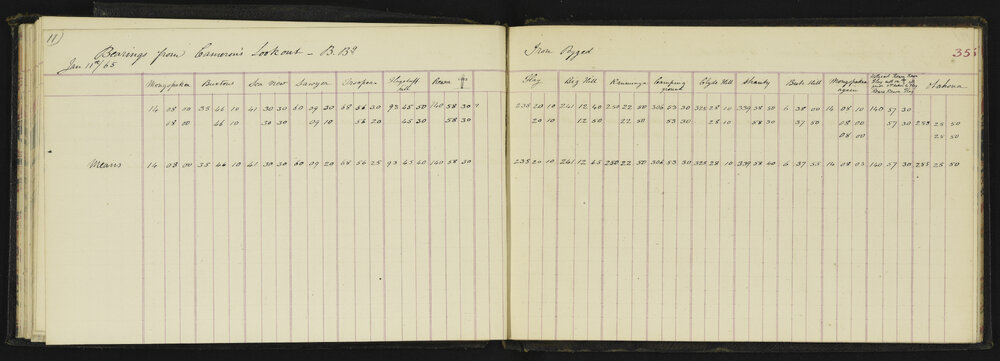 11)
Bearings from Cameron's Lookout - B. Bd
Iron Pegged
35
Jan 11th/65
Burtons Sea View Sawyer Troopers Flagstaff Hill Rowan
Flag Big Hill Camping ground Clyde Hill Shanty Bute Hill again Stations
14 08 00 35 46 10 41 30 30 60 09 30 68 56 30 93 45 50 140 58 30 ?
235 20 10 241 12 40 250 22 50 306 53 30 325 28 10 339 58 50 6 38 00 14 08 10 140 57 30
08 00 46 10 30 30 09 10 56 20 45 30 58 30
20 10 12 50 22 50 53 30 28 10 58 30 37 50 08 00 57 30 285 25 50
08 00 25 50
Means 14 08 00 35 46 10 41 30 30 60 09 20 68 56 25 93 45 40 140 58 30
235 20 10 241 12 45 250 22 50 306 53 30 325 28 10 339 58 40 6 37 55 14 08 03 140 57 30 285 25 50